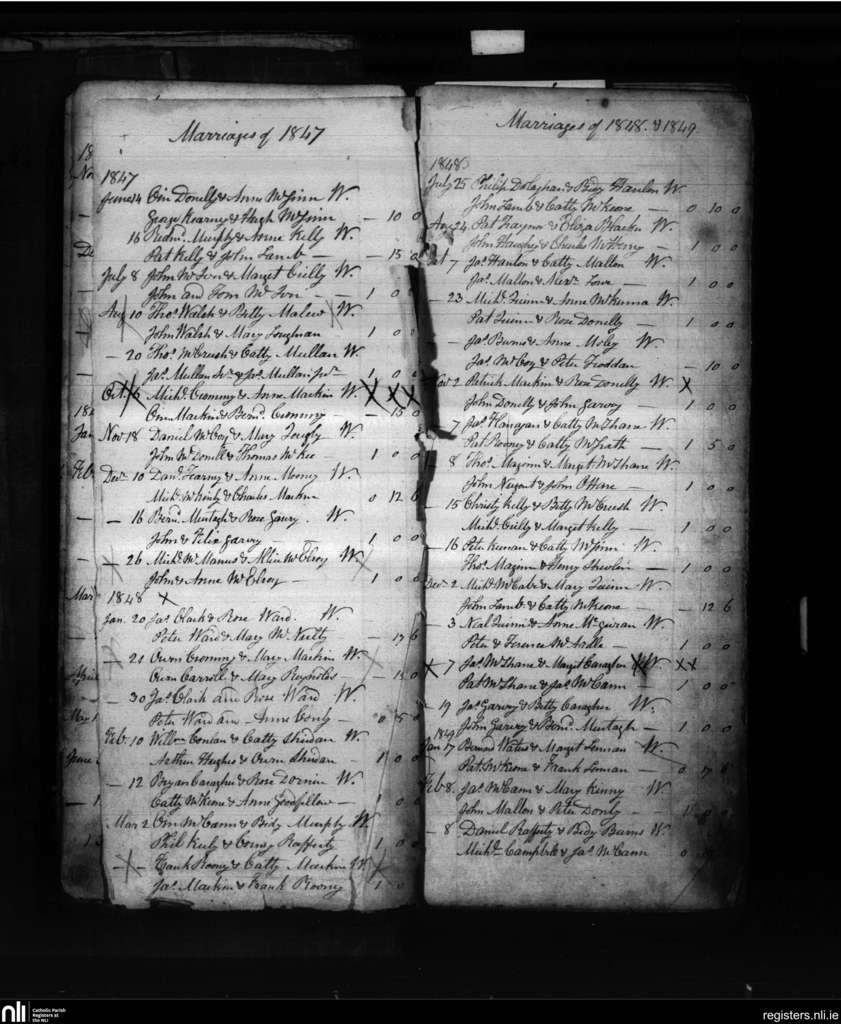 Marriages of 1847
1847
June 14 Own Donelly & Anne McGinn W.
George Kearney & Hugh McGinn — 10 0
16 Redm. Murphy & Anne Kelly W.
Pat Kelly & John Lamb — 15 0
July 8 John McIvor & Marget Cielly W.
John and Tom McIvor — 1 0 0
Aug 10 Thos. Walsh & Betty Malew W.
John Walsh & Mary Loughan 1 0 0
— 20 Thos. McCrush & Catty Mullan W.
Jas. Mullan Sr. & Jas. Mullan Jr. 1 0 0
Oct. Michl. Crommy & Anne Mackin W. X X X
Own Mackin & Bernd. Crommy — 15 0
Nov 18 Daniel McCoy & Mary W.
John McDonell & Thomas McKee 1 0 0
Decr. 10 Danl. Fearny & Anne Mooney W.
Michl. & Charles Mackin 0 12 6
— 16 Bernd. Murtagh & Rose Garvy. W.
John & Felix Garvy — 1 0 0
— 26 Michl. McManus & Allice McElroy W.
John & Anne McElroy — 1 0 0
1848 X
Jan. 20 Jas. Clark & Rose Ward. W.
Peter Ward & Mary McNulty — 17 6
— 21 Owen Crommy & Mary Mackin W.
Own Carroll & Mary Reynolds — 15 0
— 30 Jas. Clark and Rose Ward W.
Peter Ward and Anne Conly — 0 5 0
Feb. 10 Willm. Conlan & Catty Sheridan W.
Arthur Hughes & Owen Sheridan — 1 0 0
— 12 Bryan Caragher & Rose Dornin W.
Catty McKeone & Anne Goodfellow — 1 0 0
Mar 2 Own McCann & Bidy Murphy W.
Phil Kiely & Conny Rafferty 1 0 0
X — Frank Roony & Catty Mackin W
Jas. Mackin & Frank Roony 1 0
Marriages of 1848. & 1849
1848
July 25 Philip Dolaghan & Bidy Hanlon W
John Lamb & Catty McKeone — 0 10 0
Aug 24 Pat Traynor & Eliza Blacker W.
John Haughey & Charles — 1 0 0
7 Jas. Hanlon & Catty Mallon W.
Jas. Mallon & — 1 0 0
— 23 Michl. Quinn & Anne McKenna W.
Pat Quinn & Rose Donelly — 1 0 0
— Jas. Burns & Anne Moley W.
Jas. McCoy & Peter Froddan — 10 0
Nov 2 Patrick Mackin & Rose Donelly W. X
John Donelly & John Garvy — 1 0 0
7 Jas. Flanagan & Catty McShane W.
Pat Rooney & Catty McGrath — 1 5 0
— 8 Thos. Maginn & Marget McShane W.
John Nugent & John O'Hare — 1 0 0
— 15 Christy Kelly & Betty McCreesh W.
Michl. Cielly & Marget Kelly — 1 0 0
— 16 Peter Keenan & Catty McGinn W.
Thos. Maginn & Henry Shevlin — 1 0 0
Decr. 2 Michl. McCabe & Mary Quinn W.
John Lamb & Catty McKeone — — 12 6
— 3 Neal Quinn & Anne McGuran W.
Peter & Terence McArdle — 1 0 0
X 7 Jas. McShane & Margt Caragher W. X X
Pat McShane & Jas. McCann — 1 0 0
— 19 Jas. Garvy & Betty Caragher W.
John Garvy & Bernd. Murtagh — 1 0 0
1849
Jan 17 Bernard Waters & Marget Lennan W.
Pat. McKeone & Frank Lennan — 0 17 6
Feb 8. Jas. McCann & Mary Kinny W.
John Mallon & Peter Donly — 1 0 0
— 8 Daniel Rafferty & Bidy Burns W.
Michl. Campbele & Jas. McCann 0
nli
Catholic Parish
Registers at
the NLI
registers.nli.ie